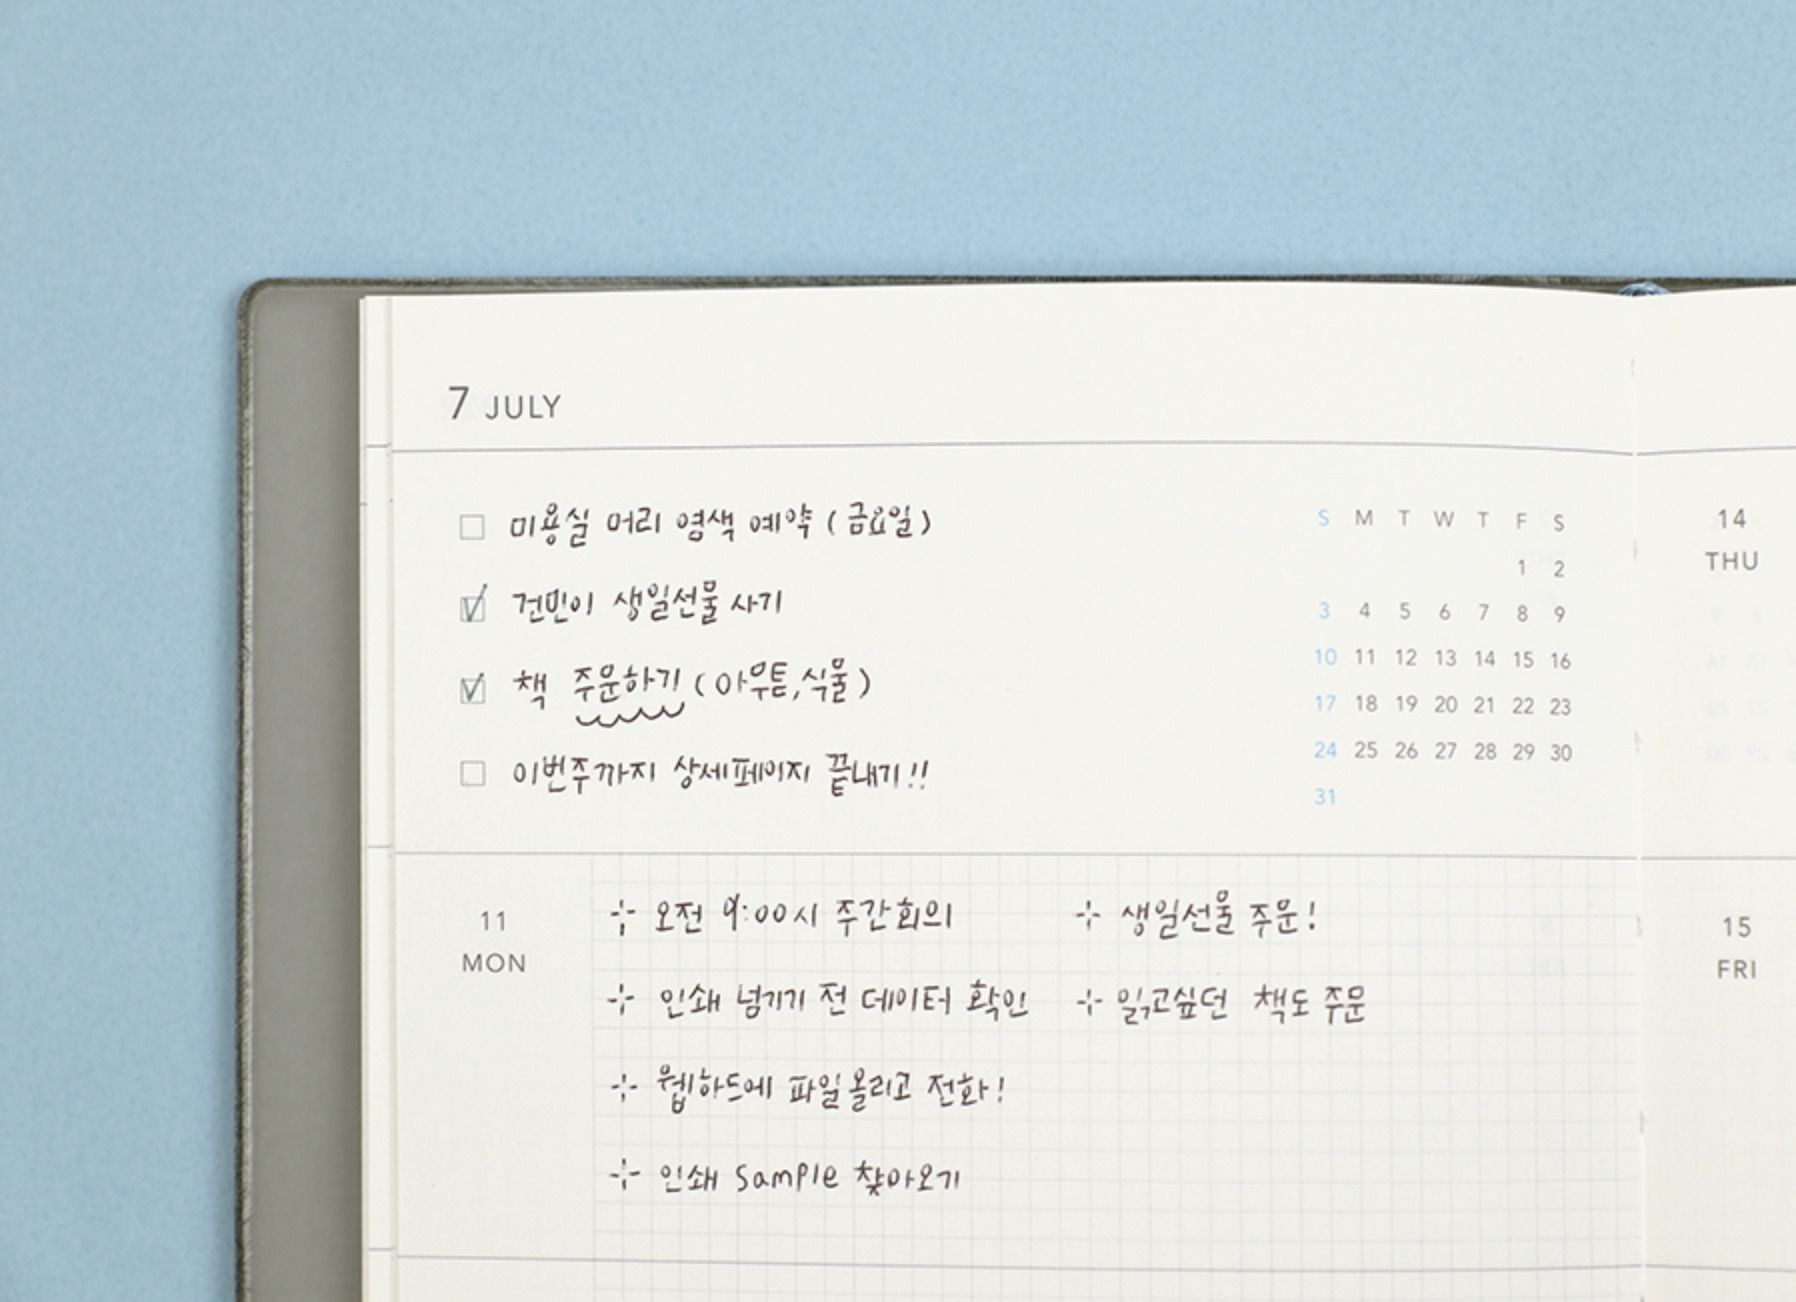 7 JULY
미용실 머리 염색 예약 (금요일)
건민이 생일선물 사기
책 주문하기 (아무튼, 식물)
이번주까지 상세페이지 끝내기!!
S M T W T F S
1 2
3 4 5 6 7 8 9
10 11 12 13 14 15 16
17 18 19 20 21 22 23
24 25 26 27 28 29 30
31
11
MON
오전 9:00시 주간회의
인쇄 넘기기 전 데이터 확인
웹하드에 파일올리고 전화!
인쇄 Sample 찾아오기
생일선물 주문!
읽고싶던 책도 주문
14
THU
15
FRI